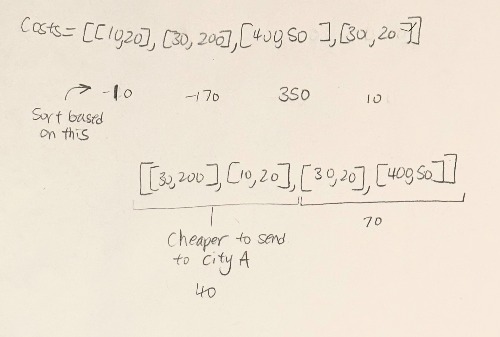 Costs = [[10,20], [30, 200], [400,50 ], [30, 20 ]]
-10 -170 350 10
Sort based
on this
[[30,200], [10,20], [30,20], [400,50]]
Cheaper to send
to city A
70
40